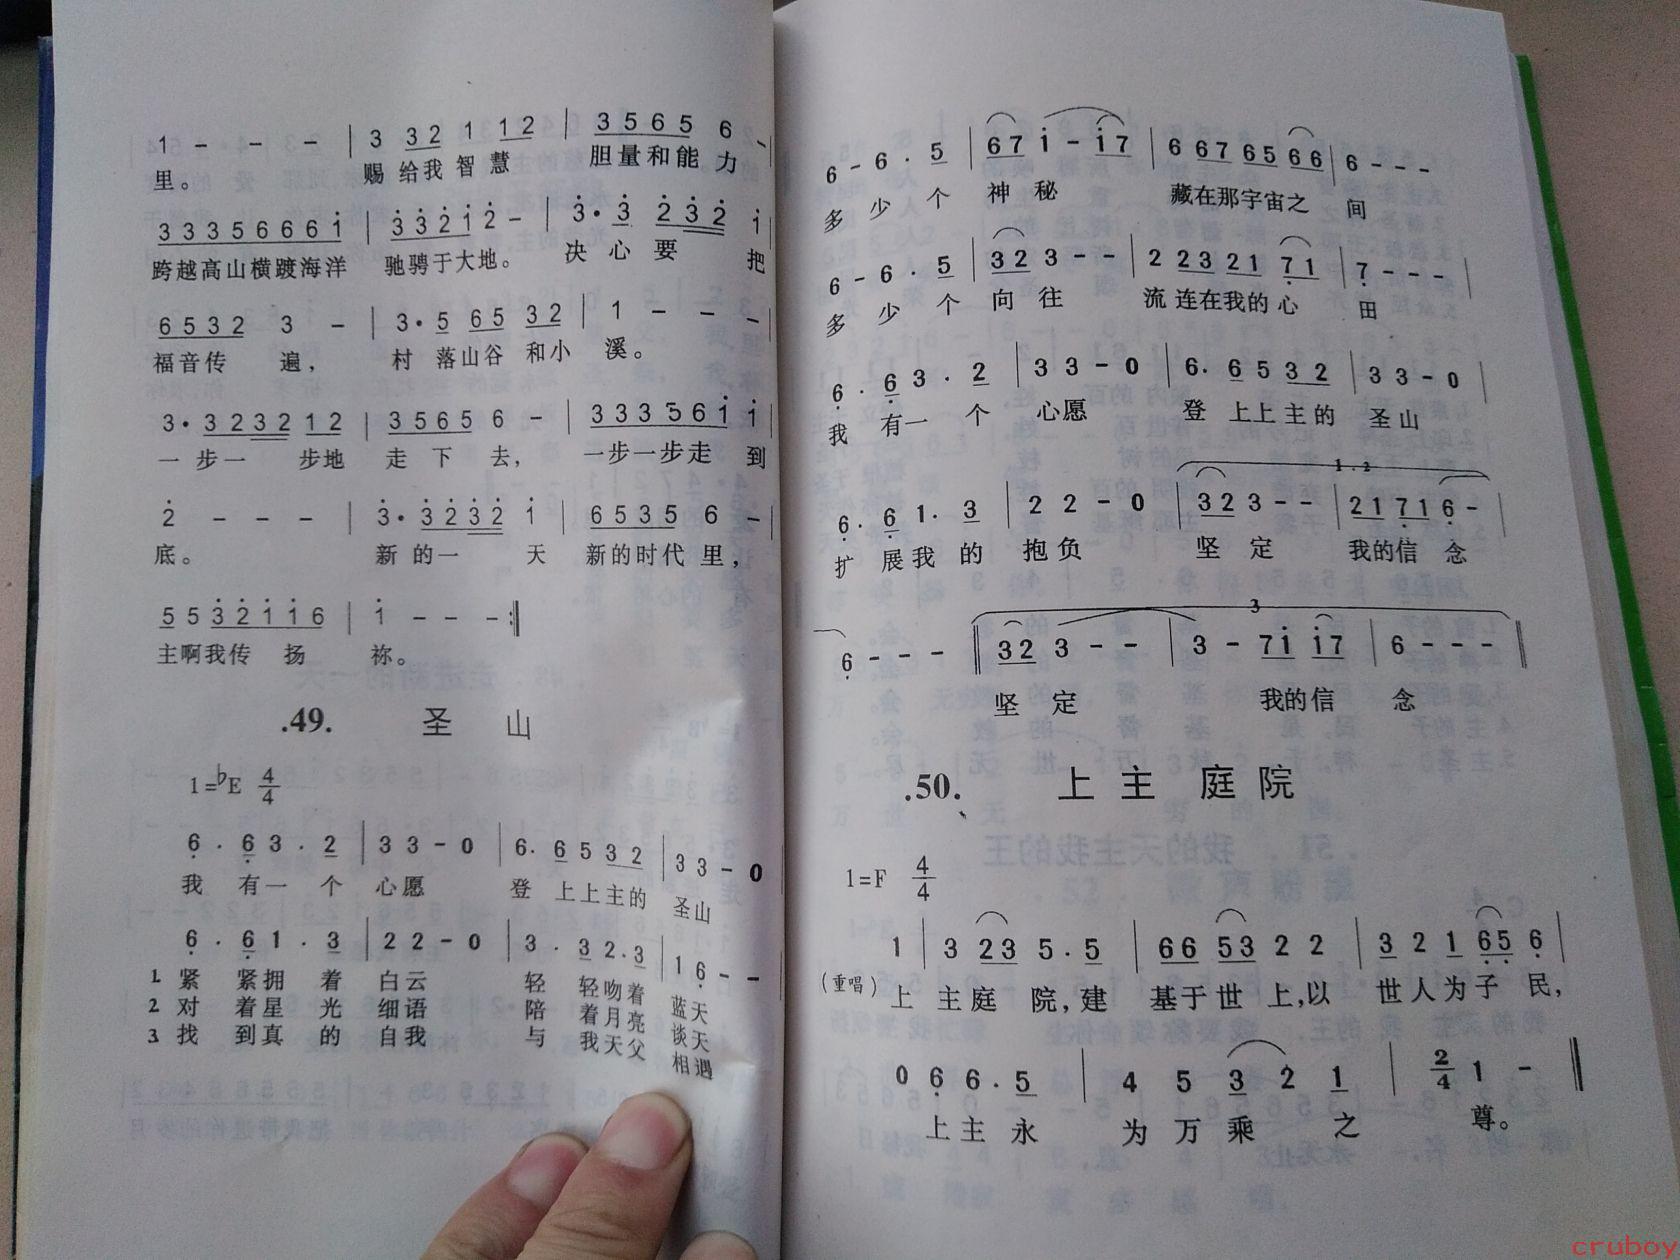 1 - - - | 3 32 1 12 | 3565 6 -
里。 赐 给我 智 慧 胆量和能 力
3335666i | 332i2 - | 3·3 232 i |
跨越高山横踱海洋 驰骋于大地。 决 心 要 把
6532 3 - | 3·5 65 32 | 1 - - - |
福音传 遍， 村 落山谷 和小 溪。
3·3232 12 | 3565 6 - | 333561i i |
一 步一 步地 走 下 去， 一步一步走 到
2 - - - | 3·3232 i | 6535 6 - |
底。 新 的一 天 新的时代 里，
5532ii6 | i - - - :|
主啊我传 扬 祢。
.49. 圣 山
1=♭E 4/4
6·63·2 | 33-0 | 6·6532 | 33-0
我 有一 个 心愿 登 上上主的 圣山
6·61·3 | 22-0 | 3·32·3 | 16--
1 紧 紧拥 着 白云 轻 轻吻着 蓝天
2 对 着星 光 细语 陪 着月亮 谈天
3 找 到真 的 自我 与 我天父 相遇
6-6·5 | 67i-i7 | 6676566 | 6---
多 少 个 神 秘 藏在那宇宙之 间
6-6·5 | 323-- | 2232171 | 7---|
多 少 个 向 往 流 连在我的心 田
6·63·2 | 33-0 | 6·6532 | 33-0 |
我 有一 个 心愿 登 上上主的 圣山
1.2
6·61·3 | 22-0 | 323-- | 21716- |
扩 展我 的 抱负 坚 定 我的信 念
3
6--- || 323-- | 3-7ii7 | 6--- ||
坚 定 我的信 念
.50. 上 主 庭 院
1=F 4/4
1 | 3 23 5·5 | 66 53 2 2 | 3 2 1 65 6 |
(重唱) 上 主庭 院，建 基于世 上，以 世人为子 民，
0 6 6·5 | 4 5 3 2 1 | 2/4 1 - ||
上主 永 为 万 乘 之 尊。
cruboy